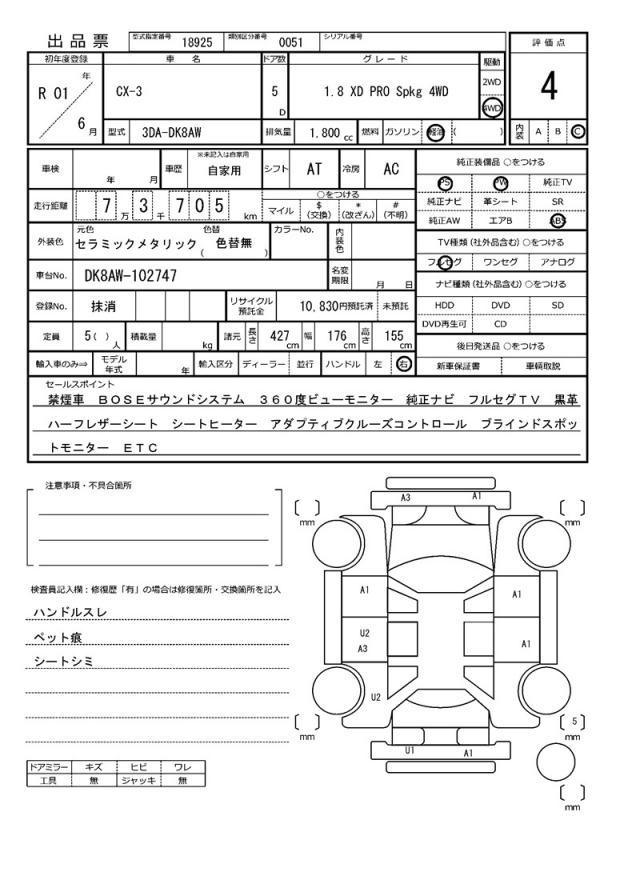 出品票 型式指定番号 18925 類別区分番号 0051 シリアル番号
初年度登録 車名 ドア数 グレード 駆動 評価点
R 01 年 6 月 CX-3 5 D 1.8 XD PRO Spkg 4WD 2WD 4WD 4
型式 3DA-DK8AW 排気量 1,800 cc 燃料 ガソリン 軽油 ( ) 内装 A B C
車検 年 月 車歴 ※未記入は自家用 自家用 シフト AT 冷房 AC 純正装備品 ○をつける
PS PW 純正TV
走行距離 7 3 7 0 5 万 千 km ○をつける マイル $ (交換) * (改ざん) # (不明) 純正ナビ 革シート SR
純正AW エアB ABS
外装色 元色 セラミックメタリック 色替 ( 色替無 ) カラーNo. 内装色 TV種類 (社外品含む) ○をつける
フルセグ ワンセグ アナログ
車台No. DK8AW-102747 名変期限 月 日 ナビ種類 (社外品含む) ○をつける
登録No. 抹消 リサイクル預託金 10,830円預託済 未預託 HDD DVD SD
DVD再生可 CD
定員 5( ) 人 積載量 kg 諸元 長さ 427 cm 幅 176 cm 高さ 155 cm 後日発送品 ○をつける
輸入車のみ⇒ モデル年式 年 輸入区分 ディーラー 並行 ハンドル 左 右 新車保証書 車輌取説
セールスポイント
禁煙車 BOSEサウンドシステム 360度ビューモニター 純正ナビ フルセグTV 黒革
ハーフレザーシート シートヒーター アダプティブクルーズコントロール ブラインドスポッ
トモニター ETC
注意事項・不具合箇所
検査員記入欄：修復歴「有」の場合は修復箇所・交換箇所を記入
ハンドルスレ
ペット痕
シートシミ
ドアミラー キズ ヒビ ワレ
工具 無 ジャッキ 無
A3 A1
mm mm
A1 A1
U2
A3 A1
U2
mm 5 mm
U1 A1
mm